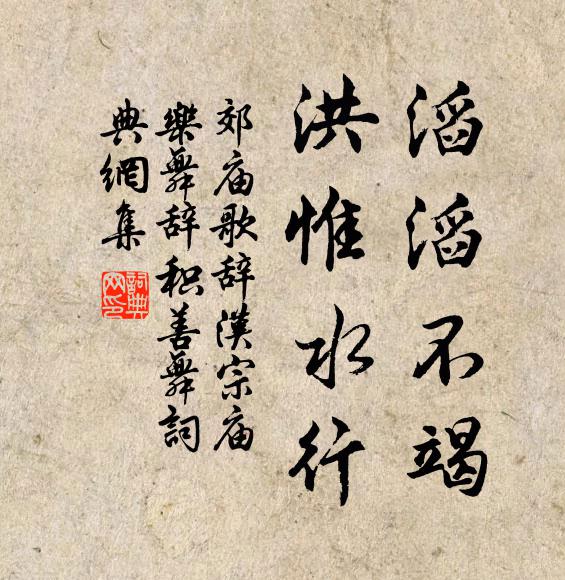 滔滔不竭
洪惟水行
郊庙歌辞漢宗庙
樂舞辞积善舞詞
典網集
詞典
网印